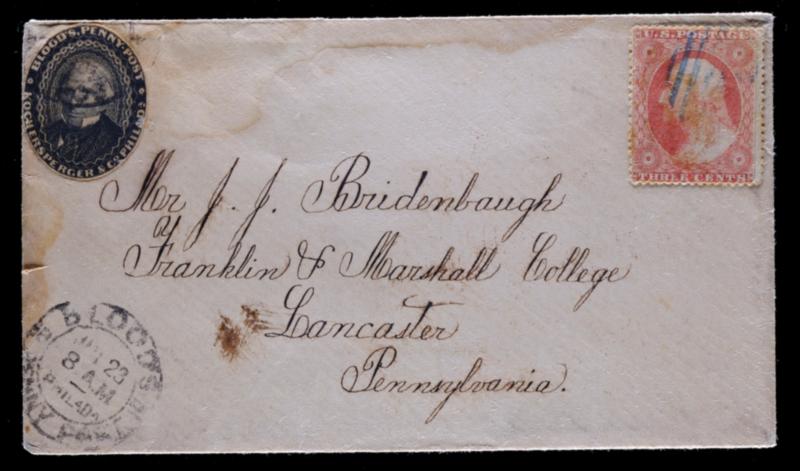 BLOOD'S PENNY POST
KOCHERSPERGER & CO. PHILADA
U.S. POSTAGE
THREE CENTS
Mr J. J. Bridenbaugh
Franklin & Marshall College
Lancaster
Pennsylvania.
BLOOD'S PENNY POST
23
8 A.M
PHILADA